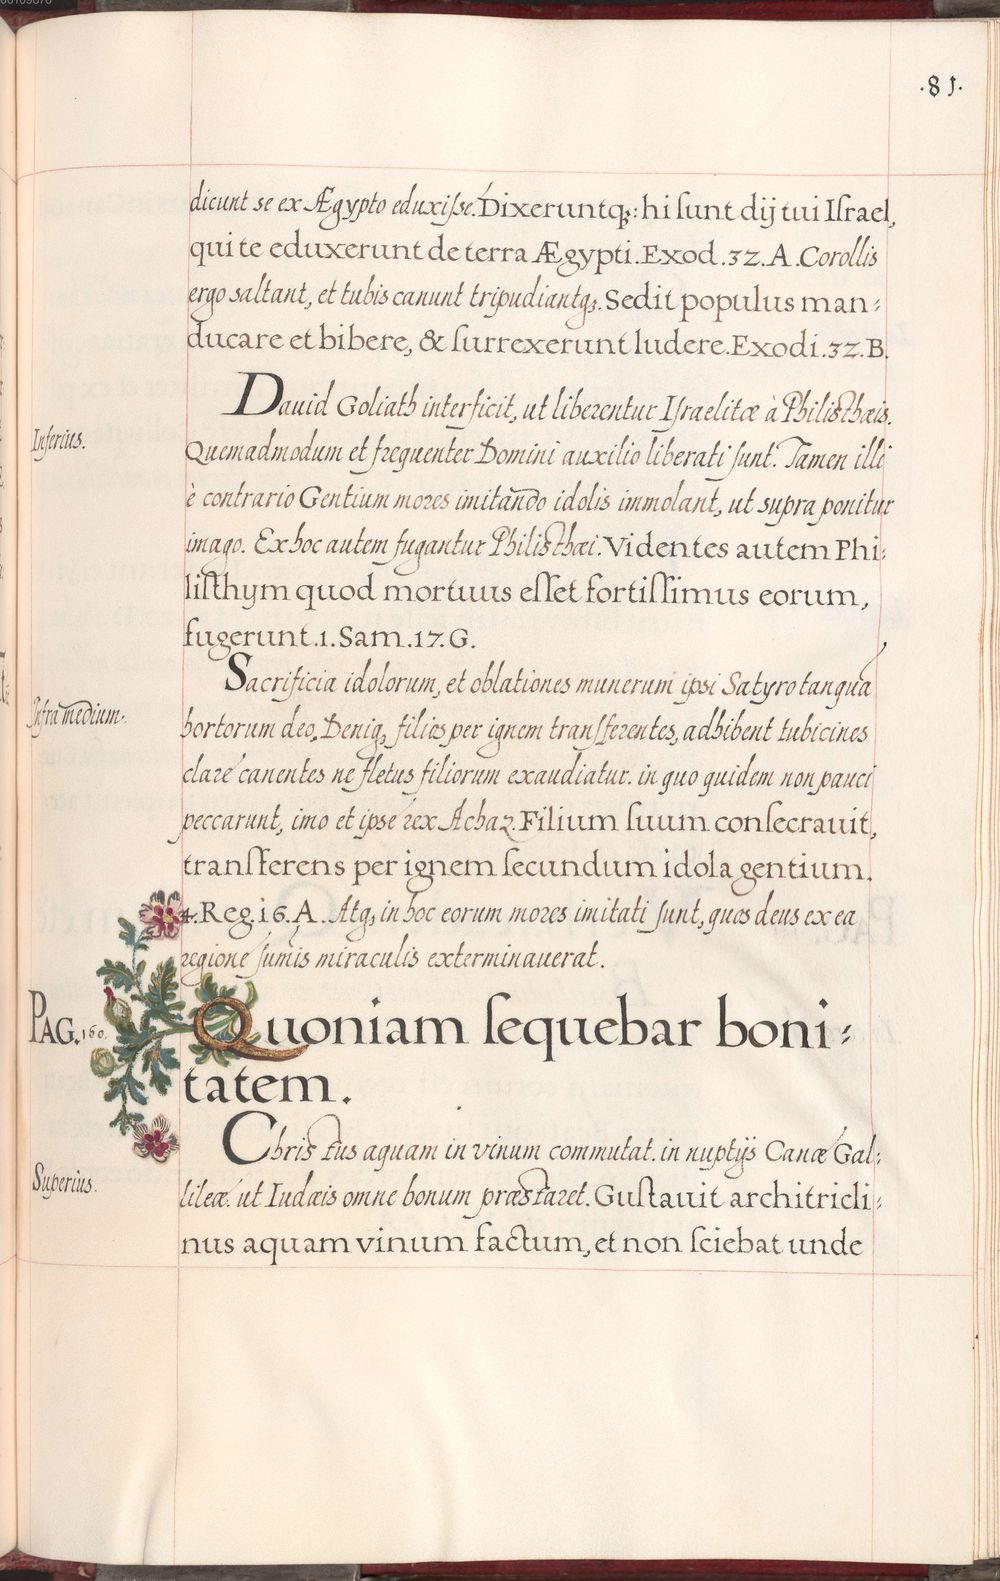 ·81·
dicunt se ex Ægypto eduxiſse. Dixeruntq́;: hi ſunt dij tui Iſrael,
qui te eduxerunt de terra Ægypti. Exod. 32. A. Corollis
ergo saltant, et tubis canunt tripudiantq́;. Sedit populus man⸗
ducare et bibere, & ſurrexerunt ludere. Exodi. 32. B.
Dauid Goliath interficit, ut liberentur Iſraelitæ à Philisthæis.
Inferius.
Quemadmodum et frequenter Domini auxilio liberati ſunt. Tamen illi
è contrario Gentium mores imitando idolis immolant, ut supra ponitur
imago. Ex hoc autem fugantur Philisthæi. Videntes autem Phi⸗
liſthym quod mortuus eſſet fortiſſimus eorum,
fugerunt. 1. Sam. 17. G.
Sacrificia idolorum, et oblationes munerum ipsi Satyro tanquã
Infra medium.
hortorum deo. Deniq́; filios per ignem tranſferentes, adhibent tubicines
clare canentes ne fletus filiorum exaudiatur. in quo quidem non pauci
peccarunt, imo et ipse rex Achaz. Filium ſuum conſecrauit,
tranſferens per ignem ſecundum idola gentium.
4. Reg. 16. A. Atq́; in hoc eorum mores imitati ſunt, quos deus ex ea
regione ſum̃is miraculis exterminauerat.
PAG. 160.
Quoniam ſequebar boni⸗
tatem.
Christus aquam in vinum commutat. in nuptijs Canæ Gal⸗
Superius.
lileæ. ut Iudæis omne bonum præstaret. Guſtauit architricli⸗
nus aquam vinum factum, et non ſciebat unde